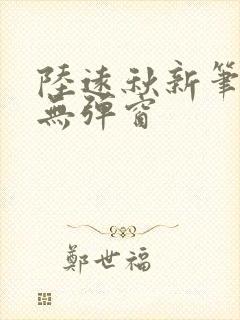 陸遠秋新筆
無彈窗
鄭世福